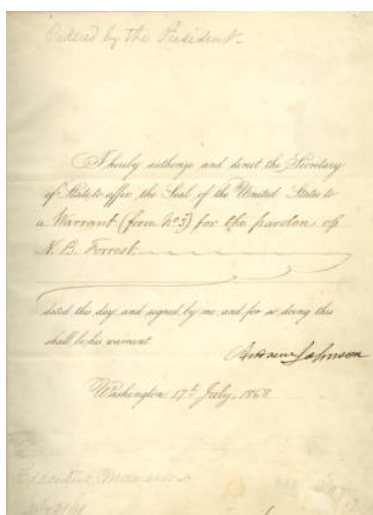 Ordered by the President.
I hereby authorize and direct the Secretary
of State to affix the Seal of the United States to
a Warrant (form No 3) for the pardon of
N. B. Forrest.
dated this day, and signed by me and for so doing this
shall be his warrant.
Andrew Johnson
Washington, 17th July, 1868
Executive Mansion